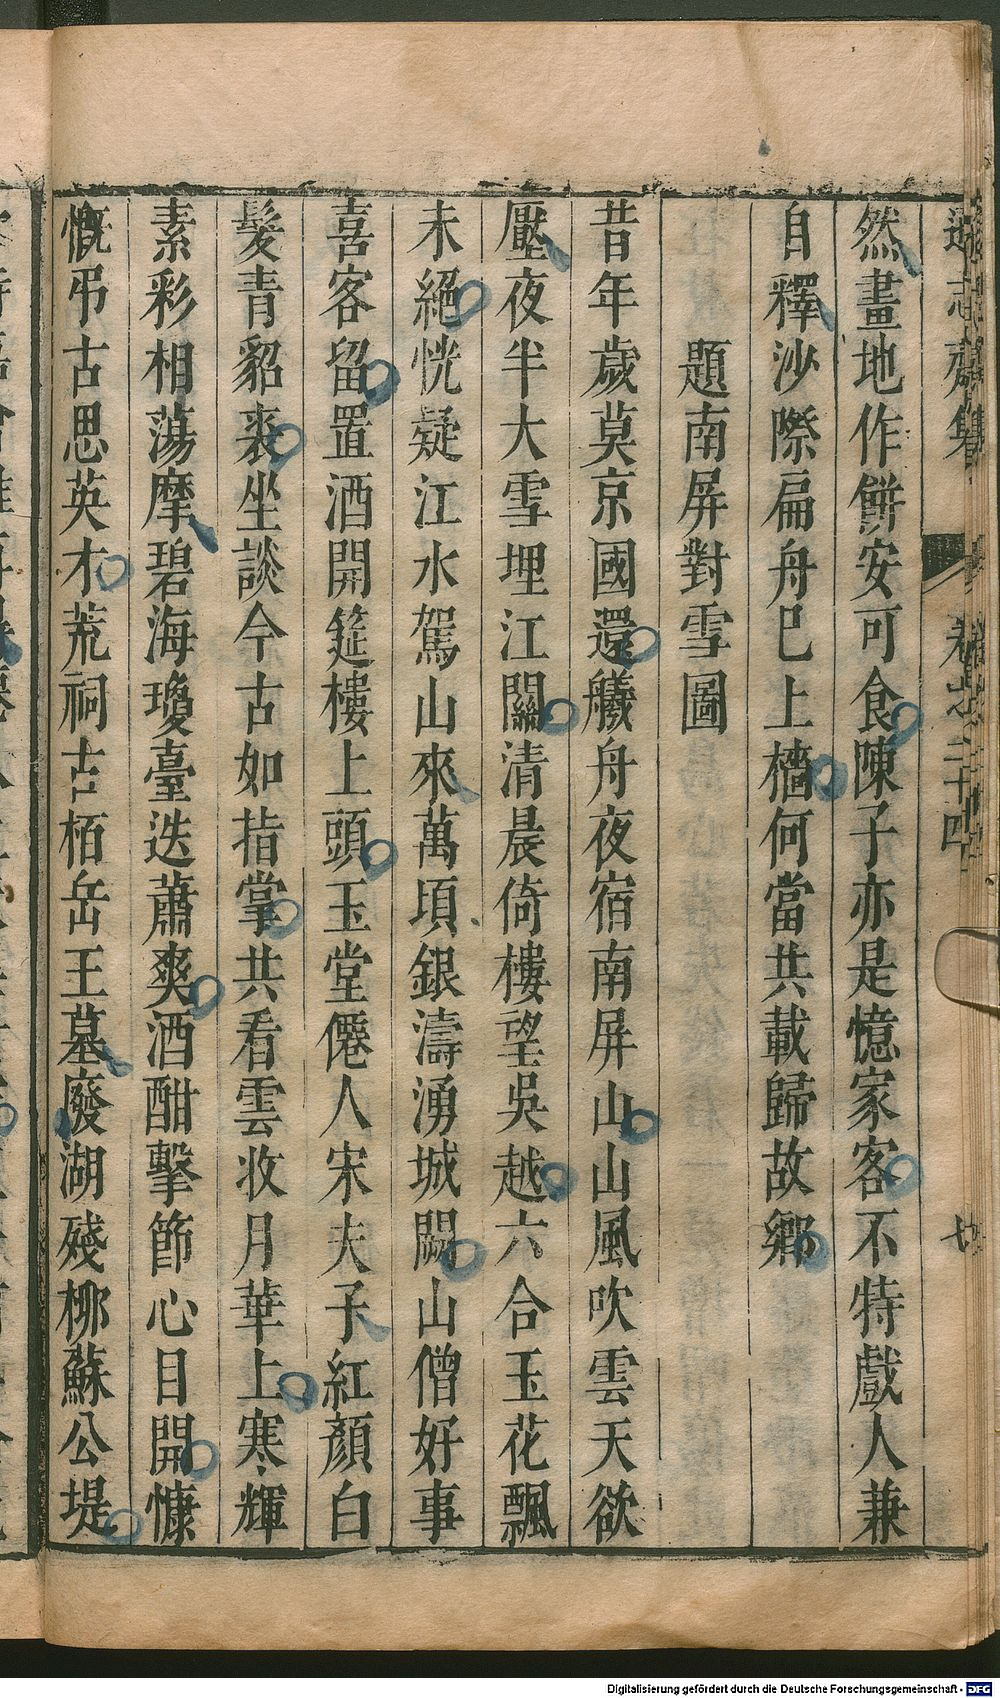 遜志齋集 卷之二十四 七
然畫地作餅安可食陳子亦是憶家客不特戲人兼
自釋沙際扁舟已上檣何當共載歸故鄉
題南屏對雪圖
昔年歲莫京國還艤舟夜宿南屏山山風吹雲天欲
壓夜半大雪埋江關清晨倚樓望吳越六合玉花飄
未絕恍疑江水駕山來萬頃銀濤湧城闕山僧好事
喜客留置酒開筵樓上頭玉堂僊人宋夫子紅顏白
髮青貂裘坐談今古如指掌共看雲收月華上寒輝
素彩相蕩摩碧海瓊臺迭蕭爽酒酣擊節心目開慷
慨弔古思英才荒祠古栢岳王墓廢湖殘柳蘇公堤
Digitalisierung gefördert durch die Deutsche Forschungsgemeinschaft - DFG